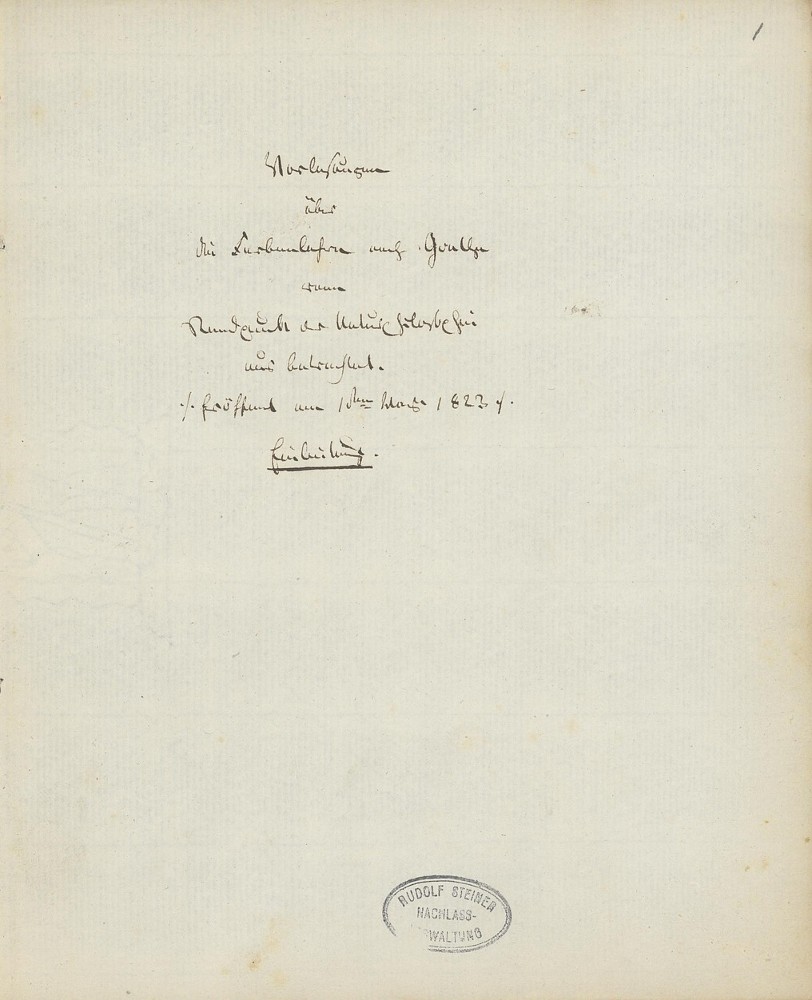 1
Vorlesungen
über
die Farbenlehre nach Goethe
vom
Standpunkt der Naturphilosophie
aus betrachtet.
·/. Eröffnet am 1sten März 1823 /.
Einleitung.
RUDOLF STEINER
NACHLASS-
WALTUNG